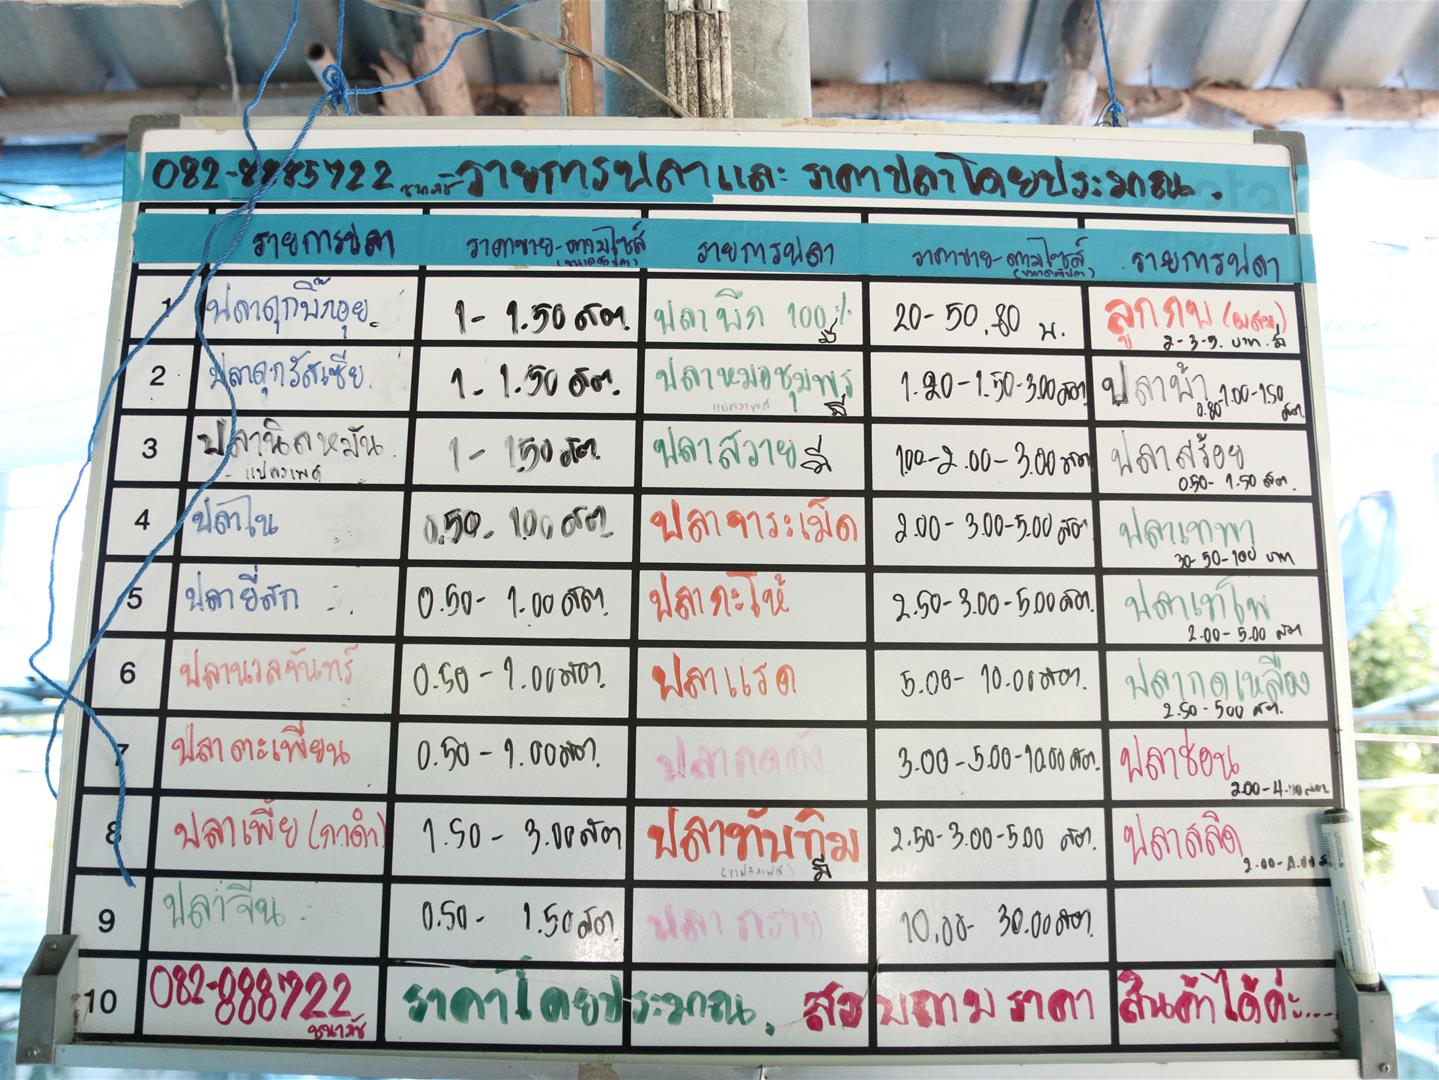 082-8885722 ชนาภัช รายการปลาและ ราคาปลาโดยประมาณ.
รายการปลา ราคาขาย-ตามไซส์ รายการปลา ราคาขาย-ตามไซส์ รายการปลา
(ขนาดตัวปลา) (ขนาดตัวปลา)
1 ปลาดุกบิ๊กอุย. 1- 1.50 สต. ปลาบึก 100% มี 20-50,80 บ. ลูกกบ (ผสม)
2-3-5. บาท. มี
2 ปลาดุกรัสเซีย. 1- 1.50 สต. ปลาหมอชุมพร มี 1.20-1.50-3.00 สต. ปลาบ้า
แปลงเพศ 0.80-1.00-1.50 สต.
3 ปลานิลหมัน. 1- 1.50 สต. ปลาสวาย มี 1.00-2.00-3.00 สต ปลาสร้อย
- แปลงเพศ 0.50-1.50 สต.
4 ปลาไน 0.50- 1.00 สต. ปลาจาระเม็ด 2.00-3.00-5.00 สต ปลาเทพา
30-50-100 บาท
5 ปลายี่สก 0.50-1.00 สต. ปลากะโห้ 2.50-3.00-5.00 สต. ปลาเทโพ
2.00-5.00 สต
6 ปลานวลจันทร์ 0.50-1.00 สต. ปลาแรด 5.00-10.00 สต. ปลากดเหลือง
2.50-5.00 สต.
7 ปลาตะเพียน 0.50-1.00 สต. ปลากดคัง 3.00-5.00-10.00 สต. ปลาช่อน
2.00-4.00 สต
8 ปลาเพี้ย (กาดำ) 1.50-3.00 สต ปลาทับทิม 2.50-3.00-5.00 สต. ปลาสลิด
(แปลงเพศ) มี 2.00-4.00 ส
9 ปลาจีน 0.50- 1.50 สต. ปลากราย 10.00- 30.00 สต.
10 082-888722 ราคาโดยประมาณ. สอบถามราคา สินค้าได้ค่ะ....
ชนาภัช